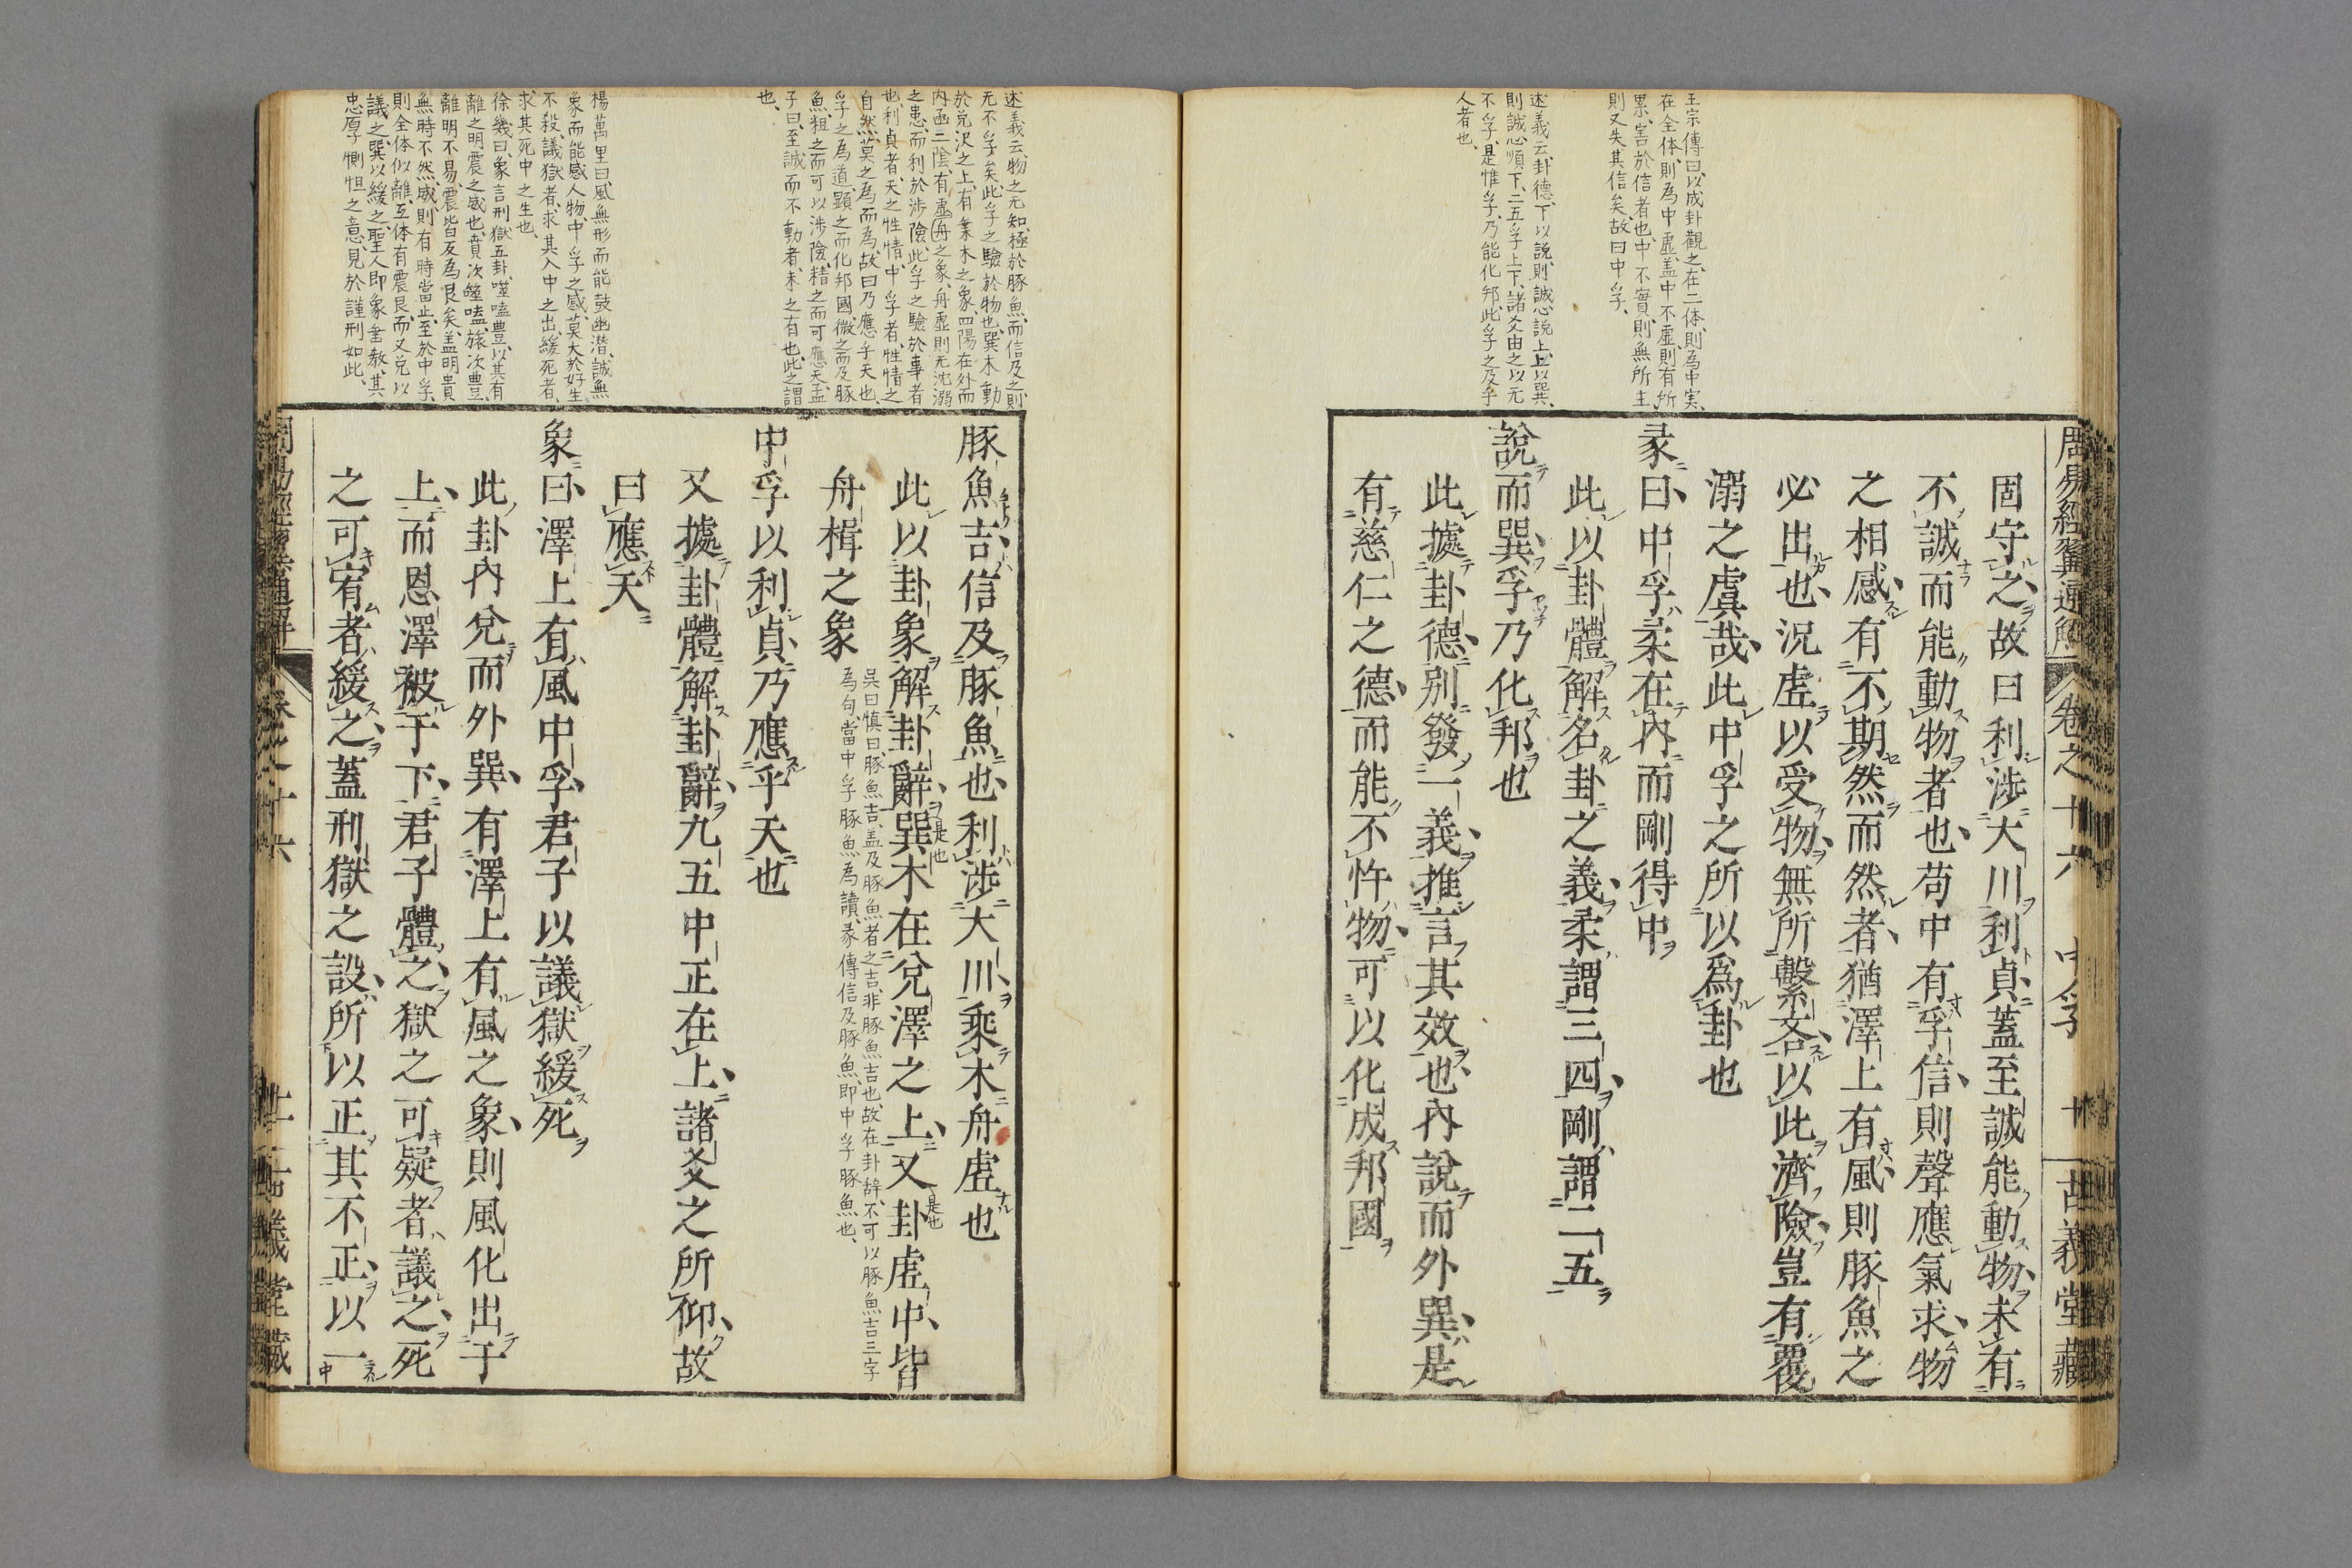 王宗傳曰以成卦觀之在二体則為中実
在全体則為中虛盖中不虛則有所
累害於信者也中不實則無所主
則又失其信矣故曰中孚
述義云卦德下以說則誠心說上上以巽
則誠心順下二五孚上下諸爻由之以无
不孚是惟孚乃能化邦此孚之及乎
人者也
周易經翼通解 卷之十六 中孚 十 古義堂藏
固守之故曰利涉大川利貞蓋至誠能動物未有
不誠而能動物者也苟中有孚信則聲應氣求物
之相感有不期然而然者猶澤上有風則豚魚之
必出也況虛以受物無所繫吝以此濟險豈有覆
溺之虞哉此中孚之所以爲卦也
彖曰中孚柔在內而剛得中
此以卦體解名卦之義柔謂三四剛謂二五
說而巽孚乃化邦也
此據卦德別發一義推言其效也內說而外巽是
有慈仁之德而能不忤物可以化成邦國
述義云物之无知極於豚魚而信及之則
无不孚矣此孚之驗於物也巽木動
於兌沢之上有乗木之象四陽在外而
内函二陰有虛舟之象舟虛則无沈溺
之患而利於涉險此孚之驗於事者
也利貞者天之性情中孚者性情之
自然莫之為而為故曰乃應乎天也
孚之為道顕之而化邦國微之而及豚
魚粗之而可以涉險精之而可應天孟
子曰至誠而不動者未之有也此之謂
也
楊萬里曰風無形而能鼓幽潜誠無
象而能感人物中孚之感莫大於好生
不殺議獄者求其入中之出緩死者
求其死中之生也
徐幾曰象言刑獄五卦噬嗑豊以其有
離之明震之威也賁次噬嗑旅次豊
離明不易震皆反為艮矣盖明貴
無時不然威則有時當止至於中孚
則全体似離互体有震艮而又兌以
議之巽以緩之聖人即象垂教其
忠厚惻怛之意見於謹刑如此
豚魚吉信及豚魚也利涉大川乘木舟虛也
此以卦象解卦辭巽木在兌澤之上又卦虛中皆
舟楫之象
吳曰愼曰豚魚吉盖及豚魚者之吉非豚魚吉也故在卦辞不可以豚魚吉三字
為句當中孚豚魚為讀彖傳信及豚魚即中孚豚魚也
中孚以利貞乃應乎天也
又據卦體解卦辭九五中正在上諸爻之所仰故
曰應天
象曰澤上有風中孚君子以議獄緩死
此卦內兌而外巽有澤上有風之象則風化出于
上而恩澤被于下君子體之獄之可疑者議之死
之可宥者緩之蓋刑獄之設所以正其不正以一
周易經翼通解 卷之十六